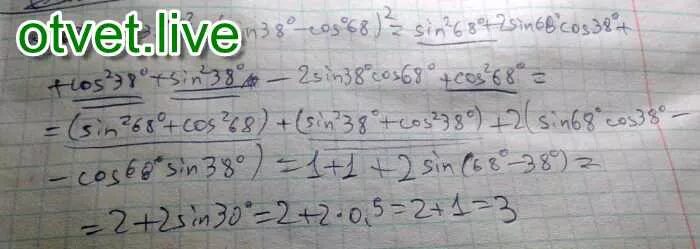 otvet.live
in38° - cos°68)² = sin²68° + 2sin68°cos38° +
+ cos²38° + sin²38° - 2sin38°cos68° + cos²68° =
= (sin²68° + cos²68) + (sin²38° + cos²38°) + 2(sin68°cos38° -
- cos68°sin38°) = 1 + 1 + 2sin(68° - 38°) =
= 2 + 2sin30° = 2 + 2·0,5 = 2 + 1 = 3